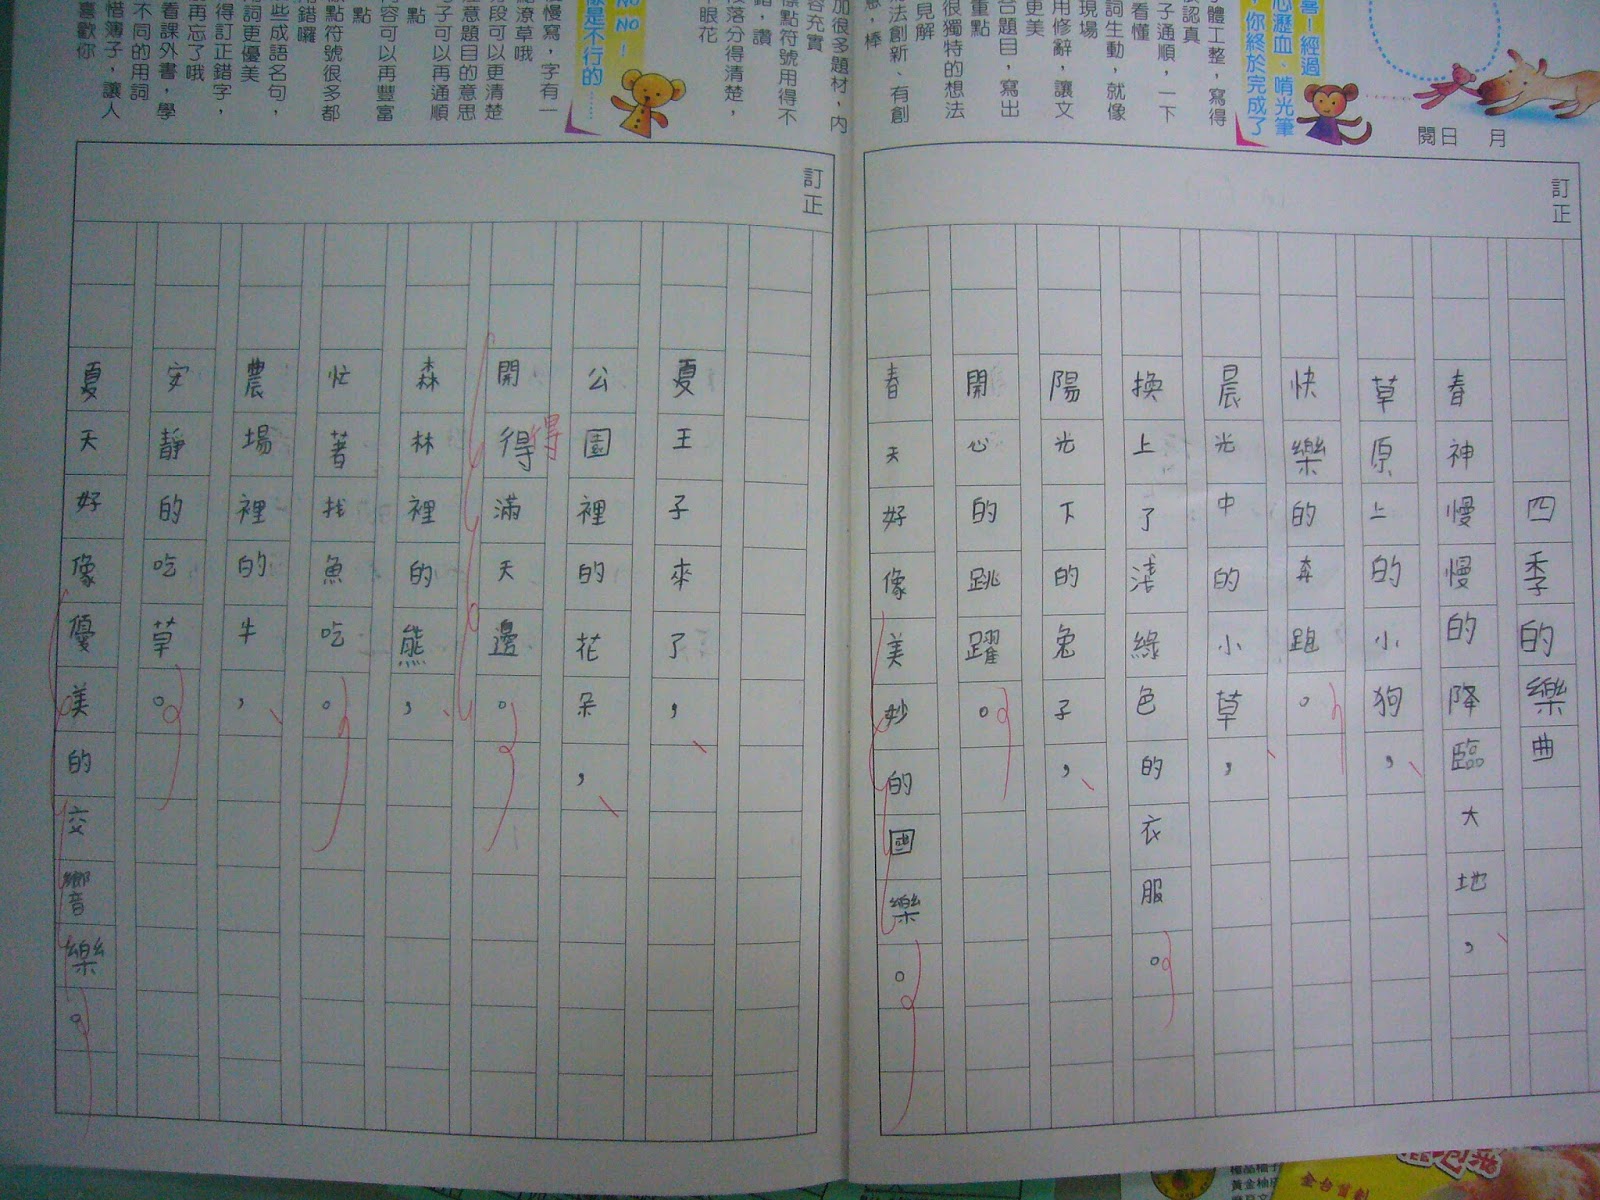 月
閱日
害！經過
心瀝血、啃光筆
，你終於完成了
字體工整，寫得
很認真
句子通順，一下
看懂
詞生動，就像
現場
用修辭，讓文
更美
合題目，寫出
重點
很獨特的想法
見解
法創新、有創
意，棒
訂正
四季的樂曲
春神慢慢的降臨大地，
草原上的小狗，
快樂的奔跑。
晨光中的小草，
換上了清綠色的衣服。
陽光下的兔子，
開心的跳躍。
春天好像美妙的國樂。
加很多題材，內
容充實
標點符號用得不
錯，讚
段落分得清楚，
眼花
NO NO！
像是不行的……
慢慢寫，字有一
點潦草哦
分段可以更清楚
注意題目的意思
句子可以再通順
點
內容可以再豐富
點
標點符號很多都
用錯囉
些成語名句，
用詞更優美
得訂正錯字，
再忘了哦
看課外書，學
不同的用詞
惜簿子，讓人
喜歡你
訂正
夏王子來了，
公園裡的花朵，
開得滿天邊。
得
森林裡的熊，
忙著找魚吃。
農場裡的牛，
安靜的吃草。
夏天好像優美的交響樂。